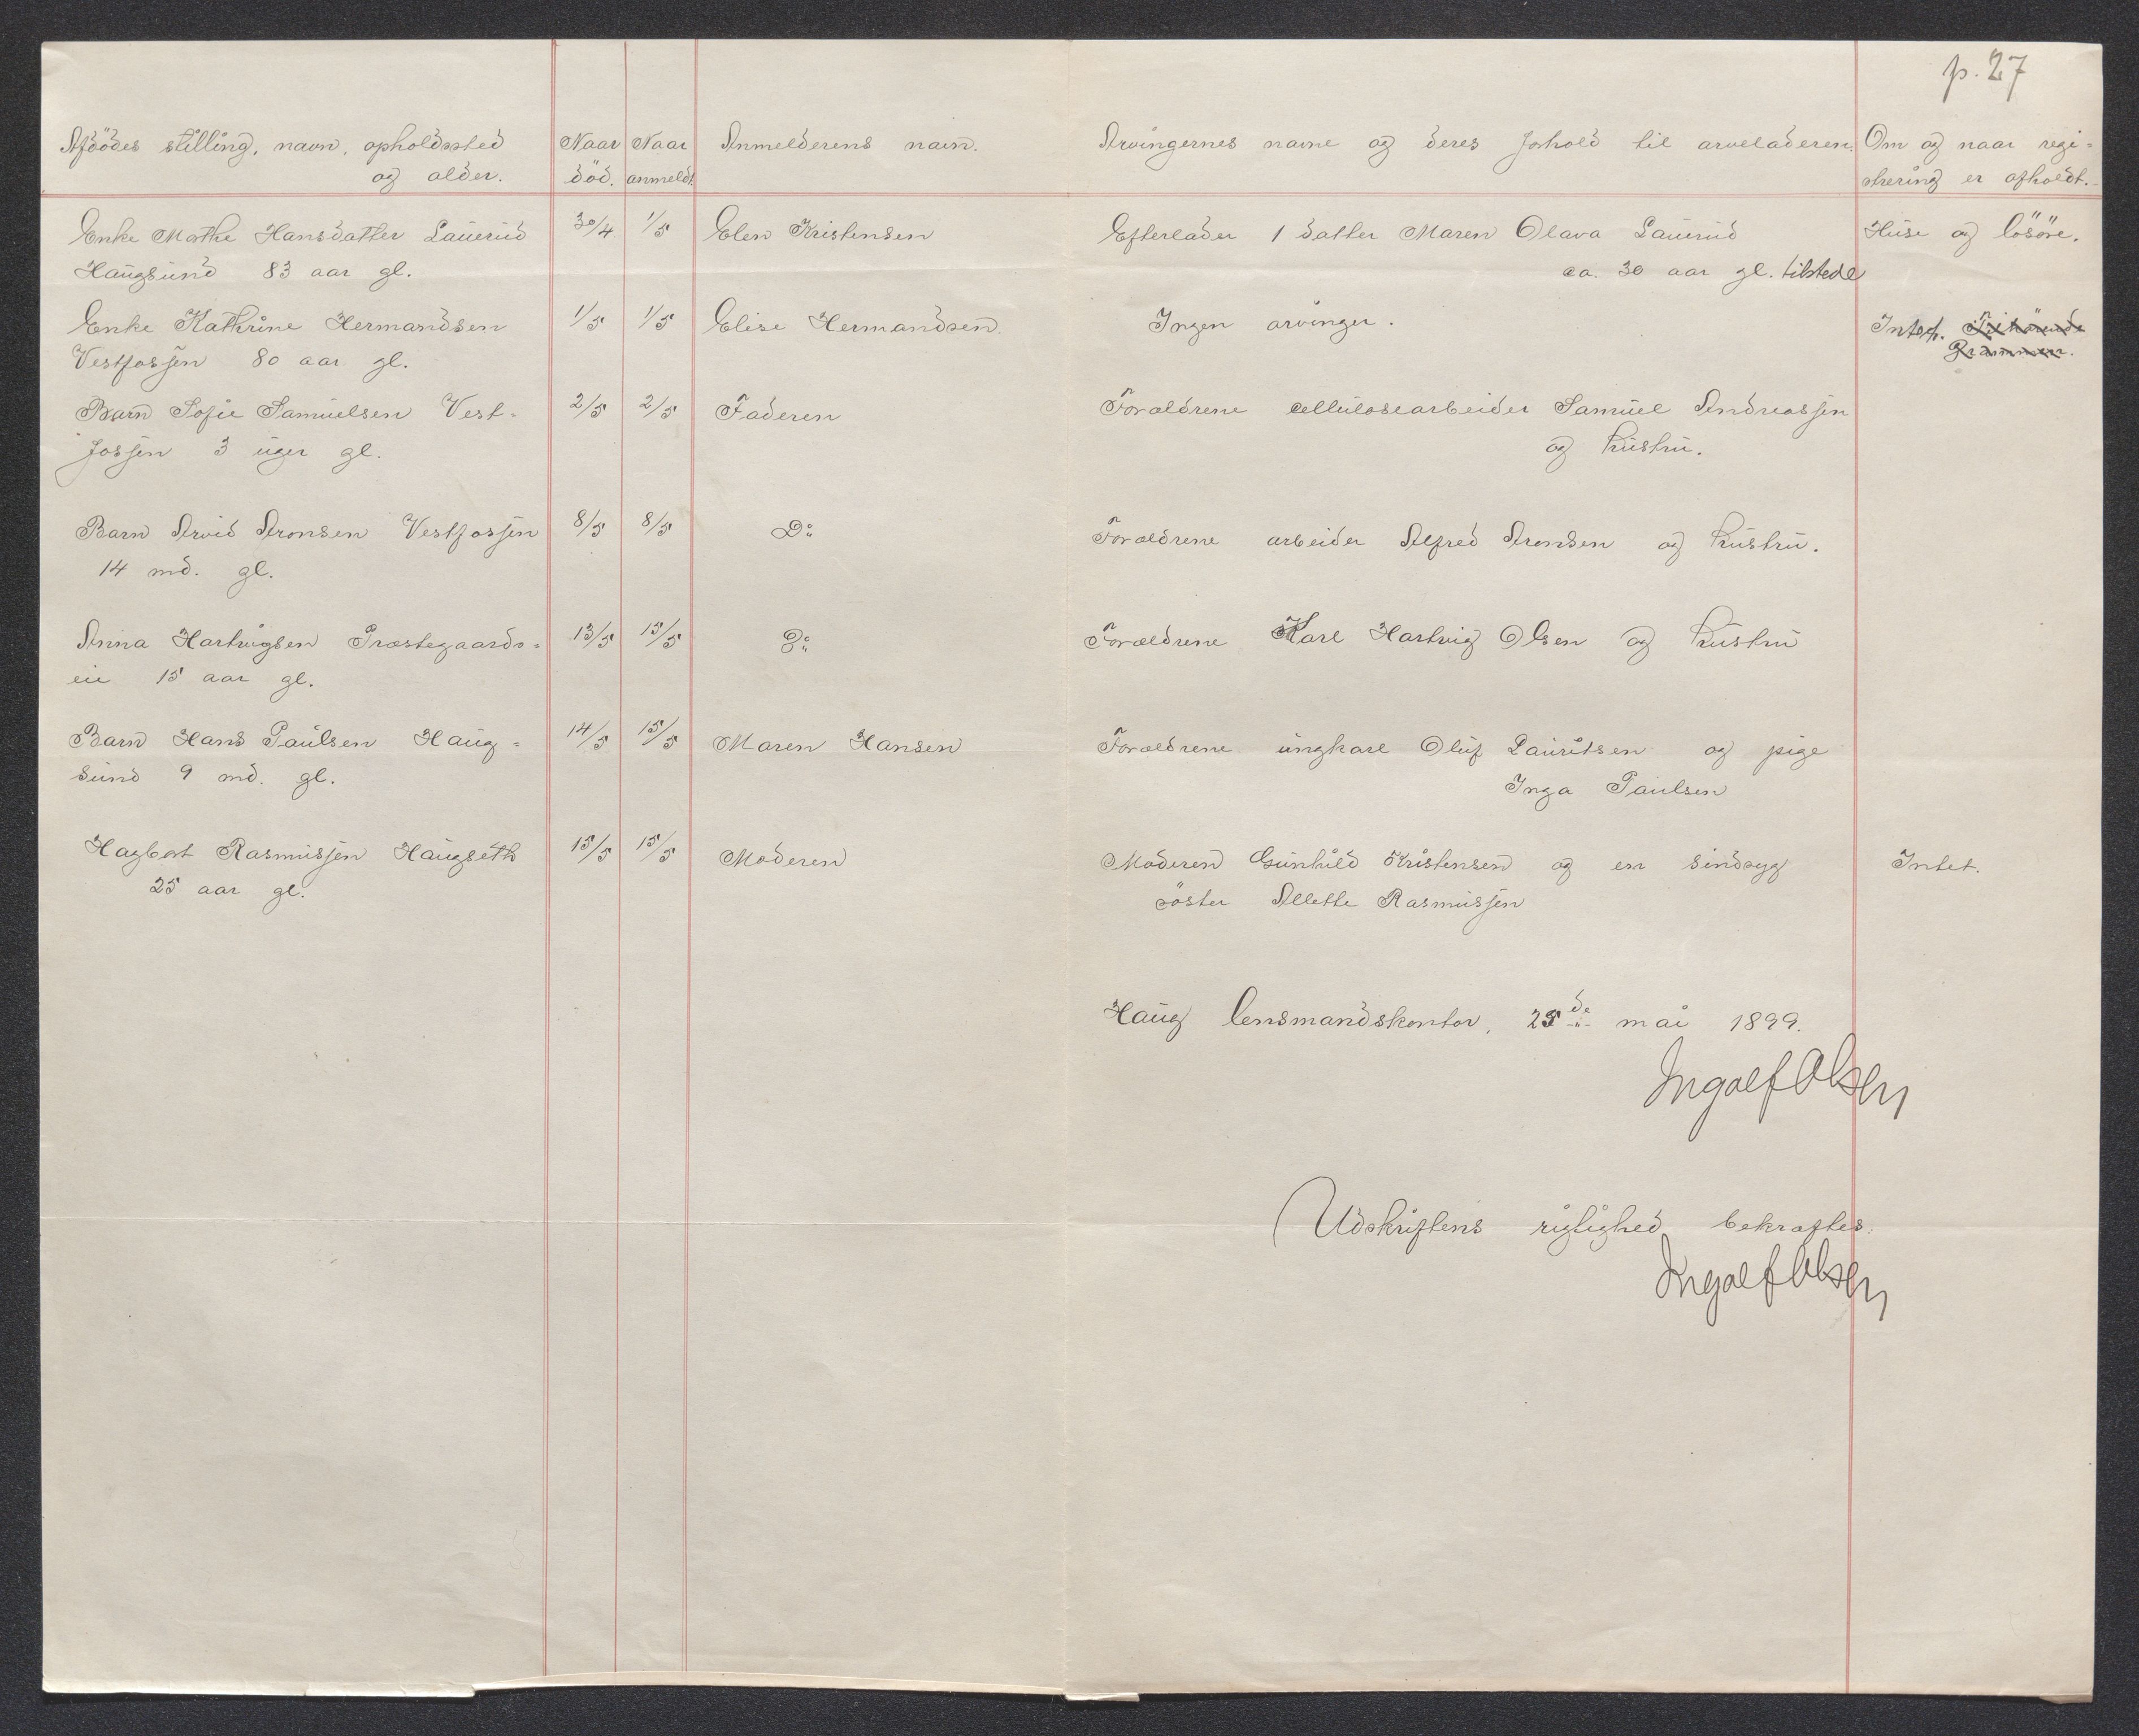 p. 27
Afdödes stilling, navn, opholdssted
og alder.
Naar
död.
Naar
anmeldt.
Anmelderens navn.
Arvingernes navne og deres forhold til arveladeren.
Om og naar regi-
strering er afholdt.
Enke Mathe Hansdatter Lauerud
Haugsund 83 aar gl.
30/4
1/5
Elen Kristensen
Efterlader 1 datter Maren Olava Lauerud
ca. 30 aar gl. tilstede
Huse og lösöre.
Enke Kathrine Hermandsen
Vestfossen 80 aar gl.
1/5
1/5
Elise Hermandsen.
Ingen arvinger.
Intet.
Barn Sofie Samuelsen Vest-
fossen 3 uger gl.
2/5
2/5
Faderen
Forældrene cellulosearbeider Samuel Andreassen
og hustru.
Barn Arvid Aronsen Vestfossen
14 md. gl.
8/5
8/5
Do
Forældrene arbeider Alfred Aronsen og hustru.
Anna Hartvigsen Præstegaards-
eie 15 aar gl.
13/5
15/5
Do
Forældrene Karl Hartvig Olsen og hustru
Barn Hans Paulsen Haug-
sund 9 md. gl.
14/5
15/5
Maren Hansen
Forældrene ungkarl Oluf Lauritsen og pige
Inga Paulsen
Hagbart Rasmussen Haugseth
25 aar gl.
15/5
15/5
Moderen
Moderen Gunhild Kristensen og en sindsyg
söster Allette Rasmussen
Intet.
Haug lensmandskontor, 25de mai 1899.
Ingolf Olsen
Udskriftens rigtighed bekræftes:
Ingolf Olsen